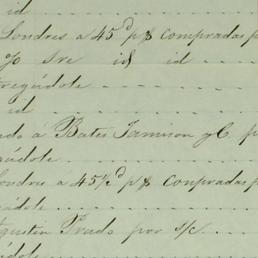 id
Londres a 45 d p $ compradas p
% Sre id id
tregádole
id
ado á Bates Jamison y C. p
gádole
Londres a 45½ d p $ compradas p
gádole
Agustin Prado por s/c
gádole